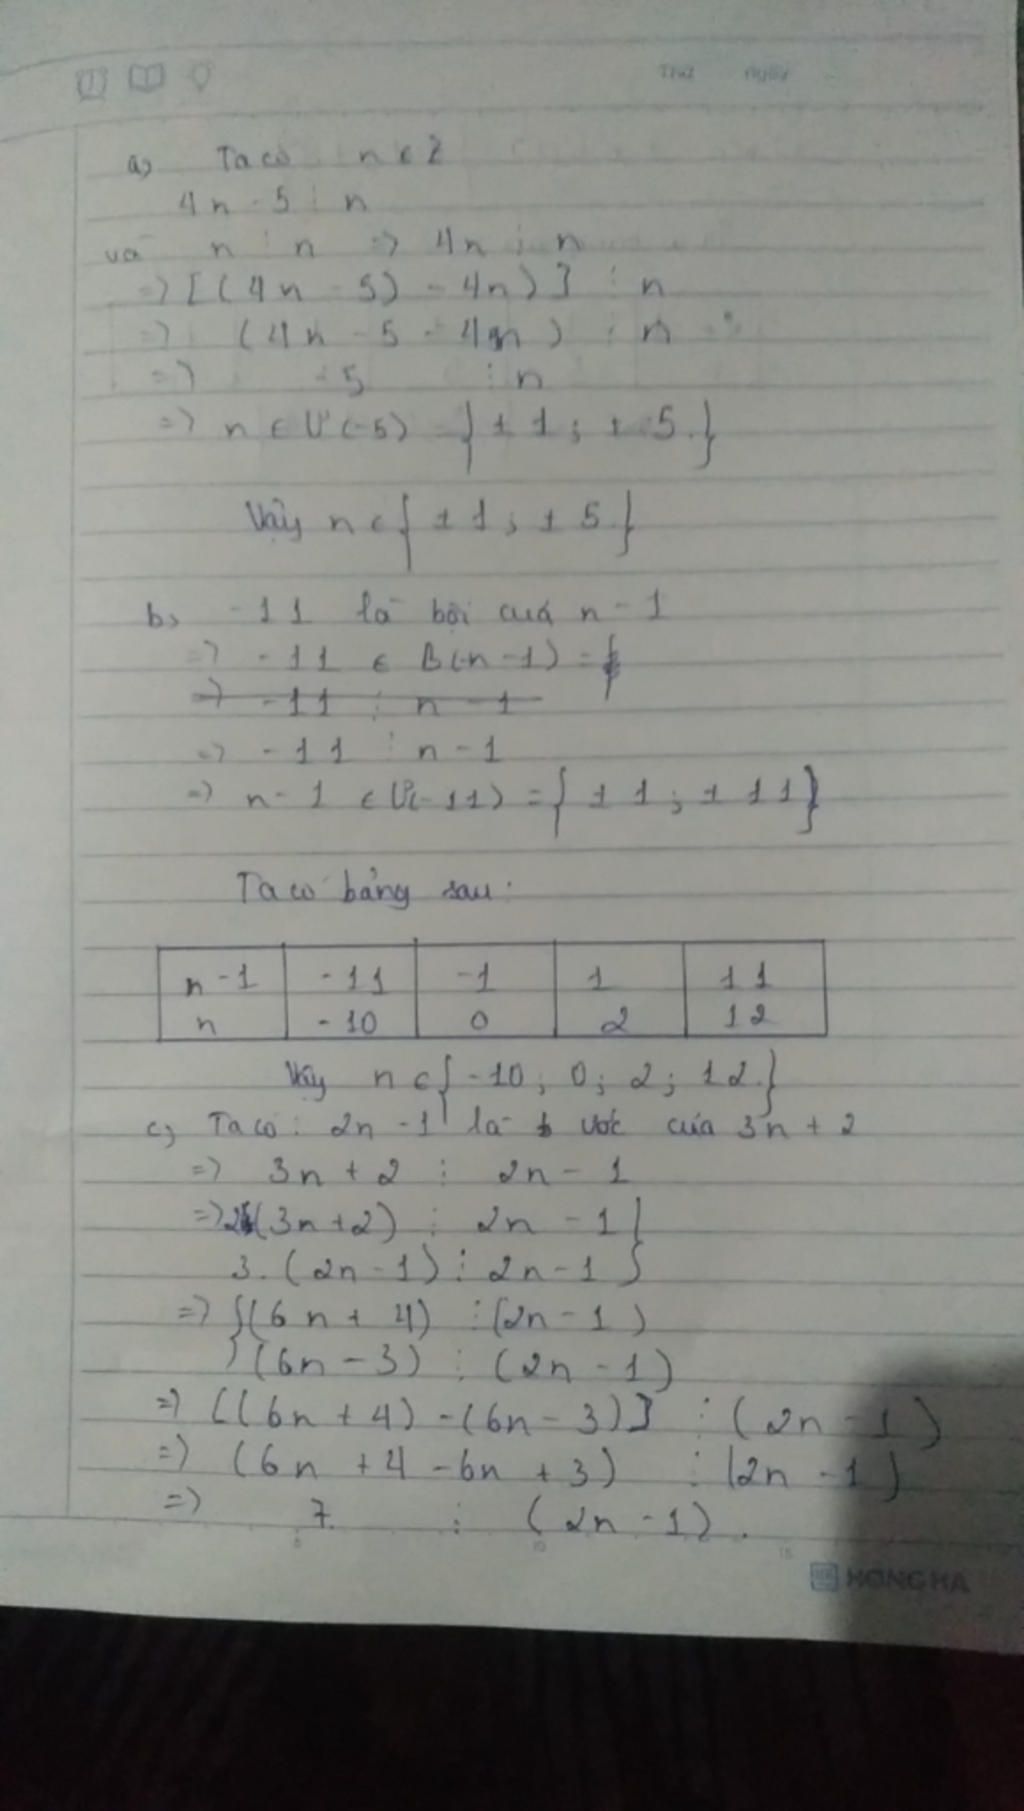 Thứ ngày
a) Ta có n ∈ Z
4n - 5 ⋮ n
và n ⋮ n => 4n ⋮ n
=> [(4n - 5) - 4n)] ⋮ n
=> (4n - 5 - 4n) ⋮ n
=> -5 ⋮ n
=> n ∈ Ư(-5) = {±1; ±5}
Vậy n ∈ {±1; ±5}
b) -11 là bội của n - 1
=> -11 ∈ B(n-1) =
=> -11 ⋮ n - 1
=> -11 ⋮ n - 1
=> n - 1 ∈ Ư(-11) = {±1; ±11}
Ta có bảng sau:
n - 1 -11 -1 1 11
n -10 0 2 12
Vậy n ∈ {-10; 0; 2; 12}
c) Ta có: 2n - 1 là ước của 3n + 2
=> 3n + 2 ⋮ 2n - 1
=> 2(3n+2) ⋮ 2n - 1 }
3.(2n-1) ⋮ 2n-1 }
=> {(6n + 4) ⋮ (2n - 1)
(6n - 3) ⋮ (2n - 1)
=> [(6n + 4) - (6n - 3)] ⋮ (2n - 1)
=> (6n + 4 - 6n + 3) ⋮ (2n - 1)
=> 7 ⋮ (2n - 1).
5 10 15
HONG HA